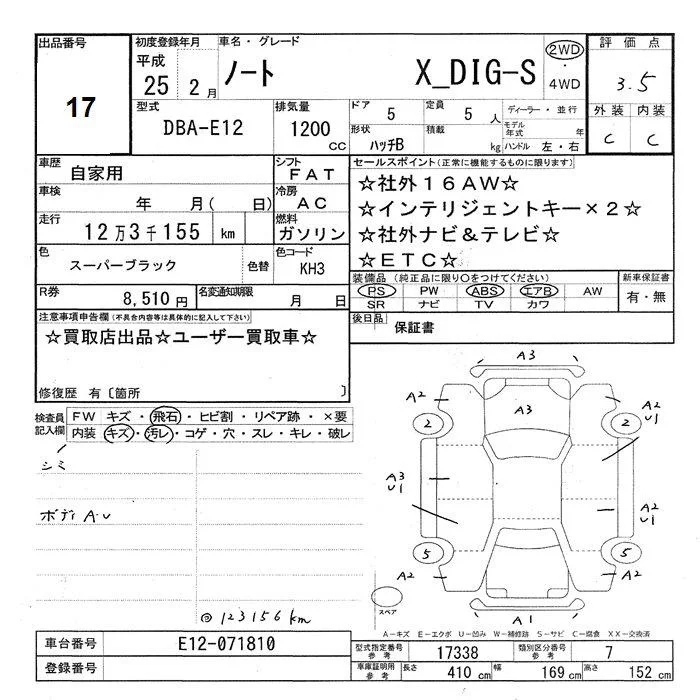 出品番号
17
初度登録年月
平成
25 2 月
車名・グレード
ノート X_DIG-S
2WD
・
4WD
評価点
3.5
外装 内装
C C
型式
DBA-E12
排気量
1200
CC
ドア
5
定員
5 人
ディーラー・並行
モデル
年式 年
形状
ハッチB
積載
kg
ハンドル 左・右
車歴
自家用
シフト
FAT
車検
年 月( 日)
冷房
AC
走行
12万3千155 km
燃料
ガソリン
色
スーパーブラック
色替
色コード
KH3
R券
8,510円
名変通知期限
月 日
セールスポイント(正常に機能するものに限ります)
☆社外16AW☆
☆インテリジェントキー×2☆
☆社外ナビ&テレビ☆
☆ETC☆
装備品 (純正品に限り○をつけてください)
PS PW ABS エアB AW
SR ナビ TV カワ
新車保証書
有・無
後日品
保証書
注意事項申告欄(不具合内容等は具体的に記入して下さい)
☆買取店出品☆ユーザー買取車☆
修復歴 有〔箇所 〕
検査員
記入欄
FW キズ・飛石・ヒビ割・リペア跡・×要
内装 キズ・汚レ・コゲ・穴・スレ・キレ・破レ
シミ
ボディA.U
◎123156km
A3
A2
A2
U1
2
A3
2
A3
U1
A2
U1
5
5
A2
A2
スペア
A1
A-キズ E-エクボ U-凹み W-補修跡 S-サビ C-腐食 XX-交換済
車台番号
E12-071810
登録番号
型式指定番号
参考
17338
類別区分番号
参考
7
車庫証明用
参考
長さ
410 cm
幅
169 cm
高さ
152 cm